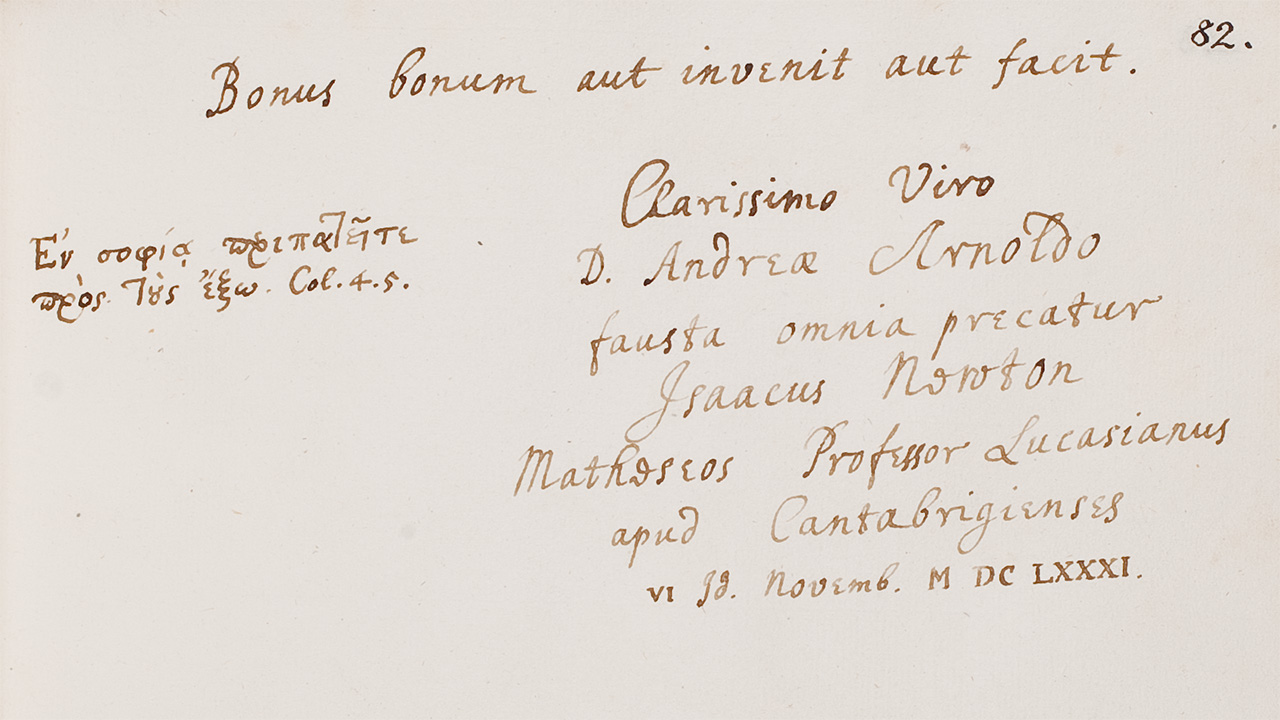 82.
Bonus bonum aut invenit aut facit.
Ἐν σοφίᾳ περιπατεῖτε
πρὸς τοὺς ἔξω. Col. 4. 5.
Clarissimo Viro
D. Andreæ Arnoldo
fausta omnia precatur
Isaacus Newton
Matheseos Professor Lucasianus
apud Cantabrigienses
VI Id. Novemb. M DC LXXXI.